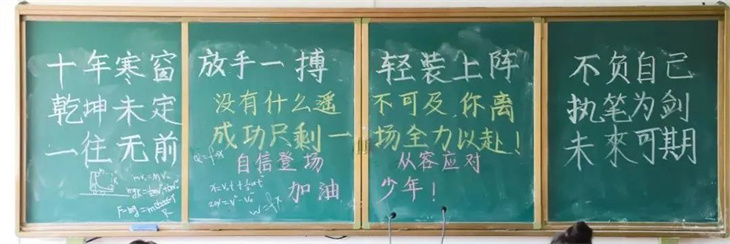 十年寒窗 放手一搏 轻装上阵 不负自己
乾坤未定 没有什么遥不可及,你离 执笔为剑
一往无前 成功只剩一场全力以赴! 未来可期
自信登场 从容应对
加油 少年!